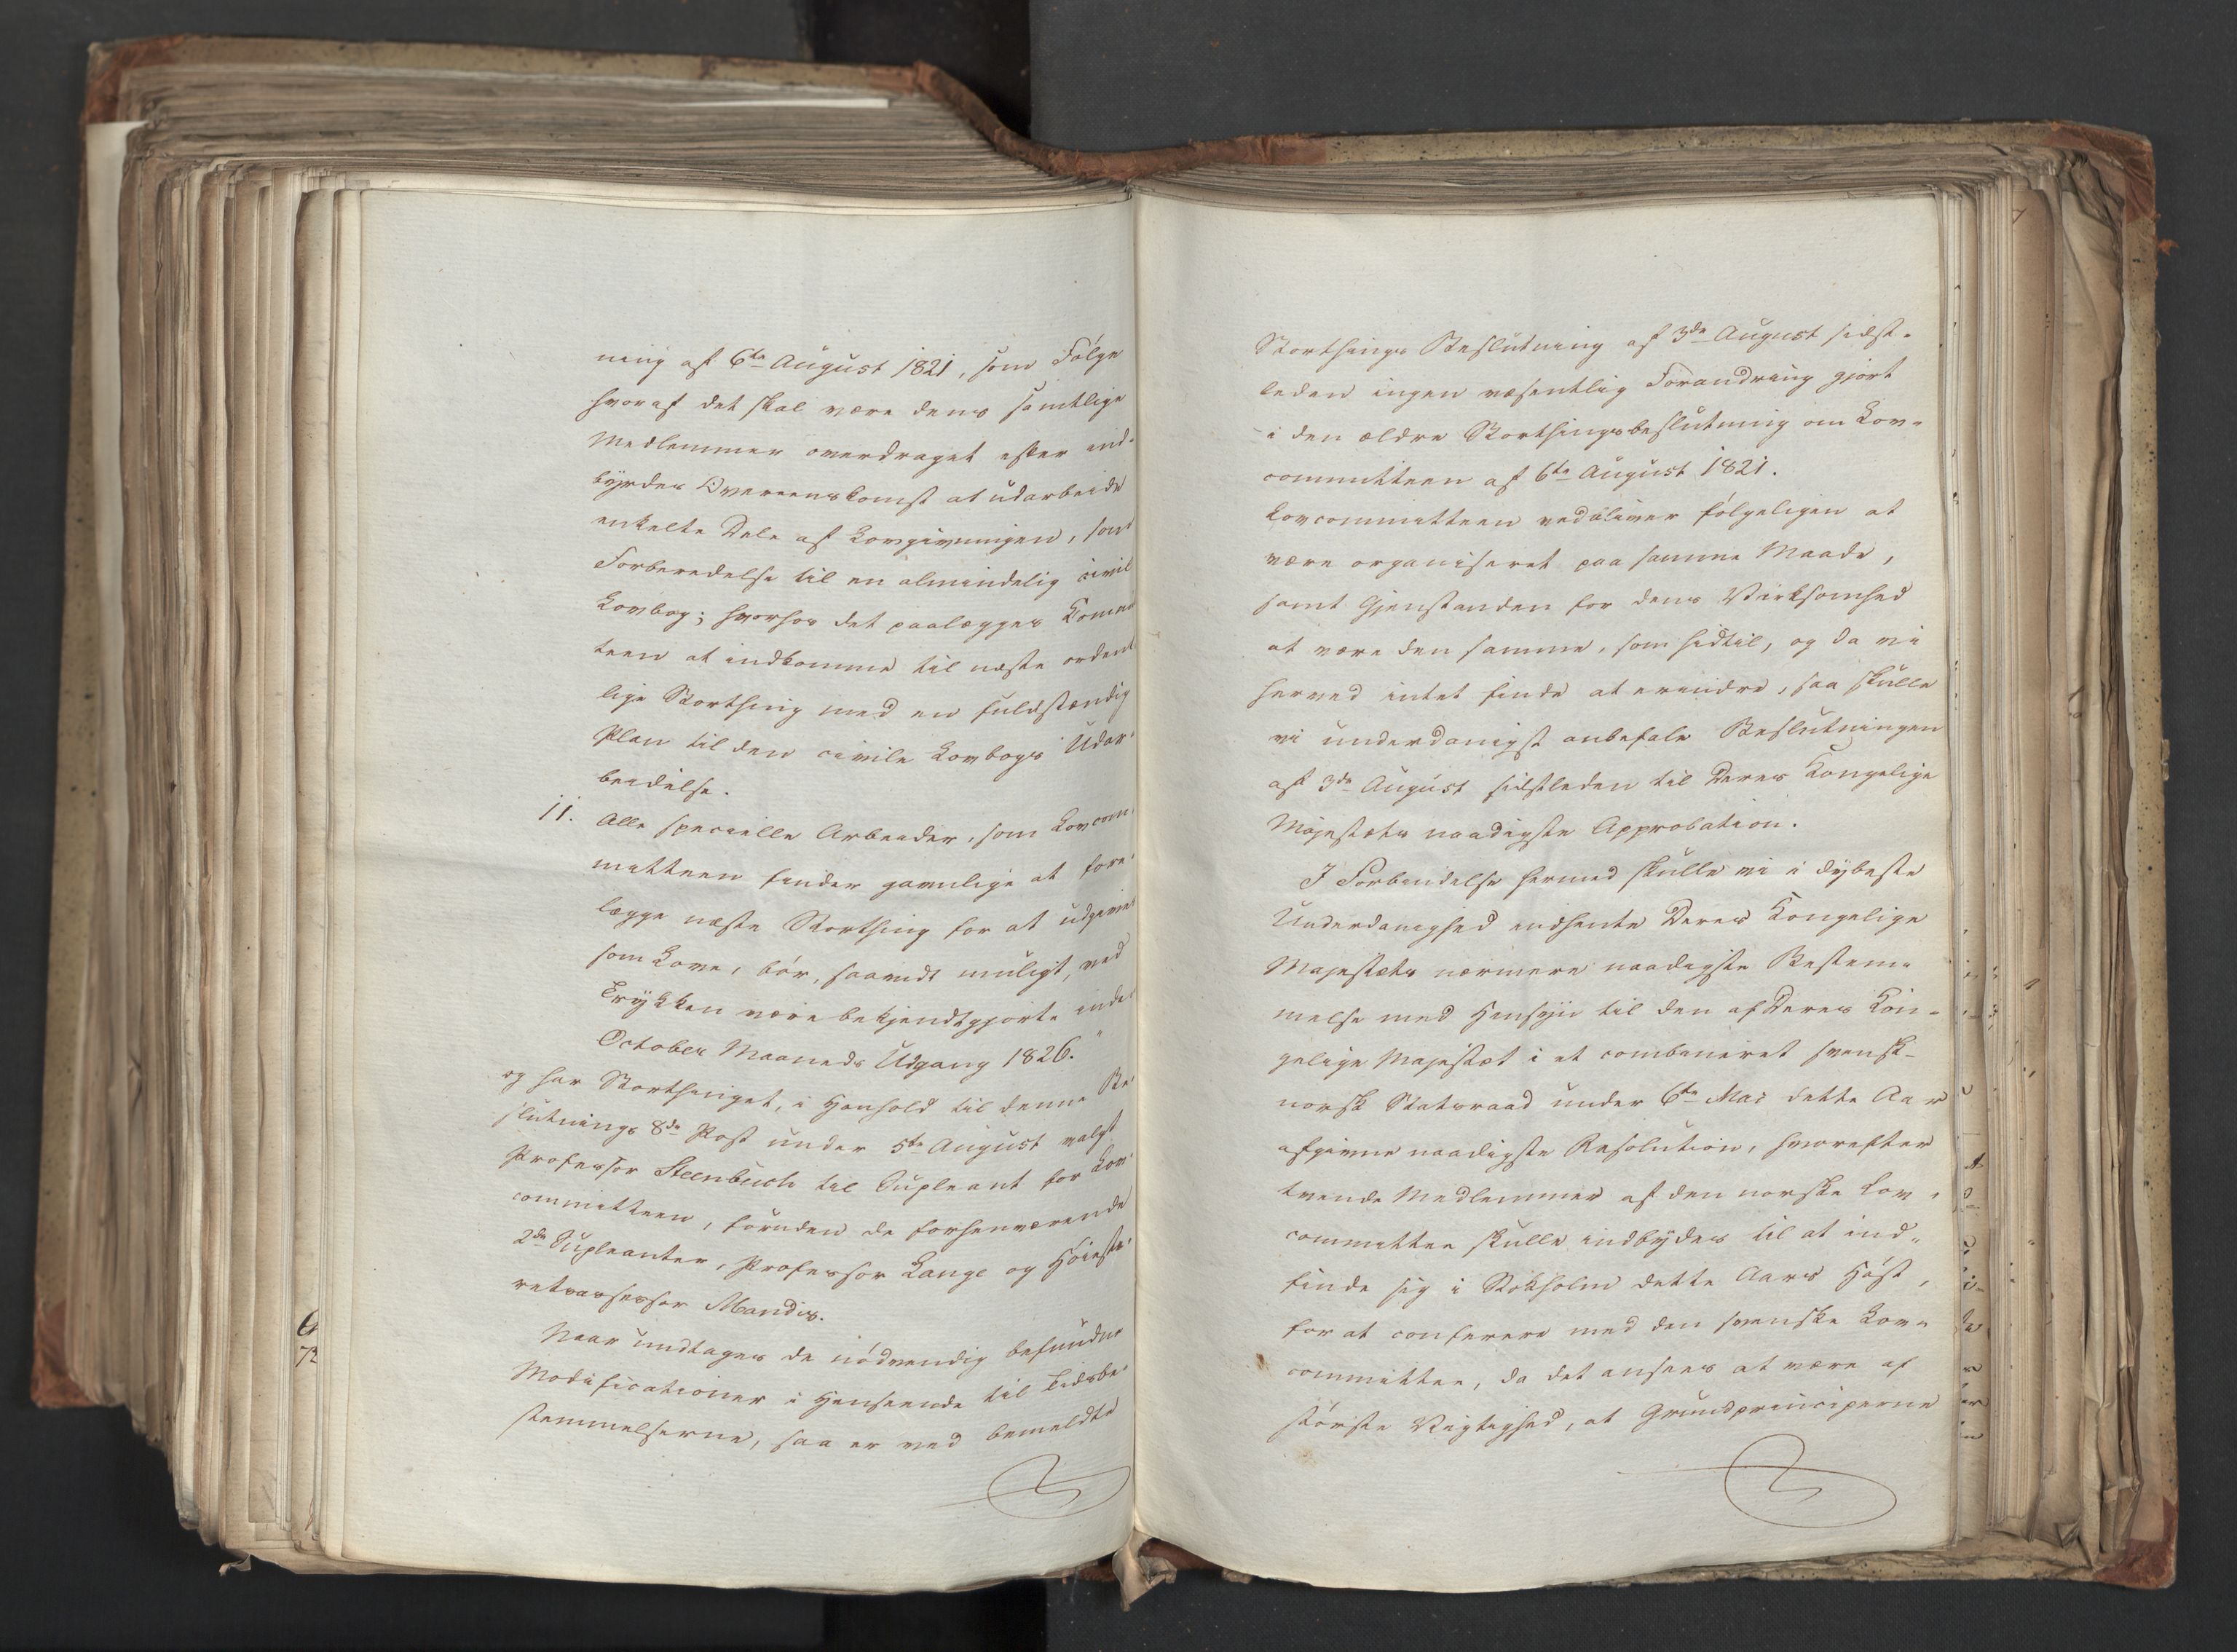 ning af 6te August 1821, som Følge
hvoraf det skal være dens samtlige
Medlemmer overdraget efter ind-
byrdes Overeenskomst at udarbeide
enkelte Dele af Lovgivningen, som
Forberedelse til en almindelig civil
Lovbog; hvorhos det paalægges Commi
teen at indkomme til næste ordent
lige Storthing med en fuldstændig
Plan til den civile Lovbogs Udar-
beidelse.
11. Alle specielle Arbeider, som Lovcom-
mitteen finder gavnlige at fore-
lægge næste Storthing for at udgives
som Love, bör, saavidt muligt, ved
Trykken være bekjendtgjorte inden
October Maaneds Udgang 1826."
og har Storthinget, i Henhold til denne Be-
slutnings 8de Post under 5te August valgt
Professor Steenbuch til Supleant for Lov-
committeen, foruden de forhenværende
2de Supleanter, Professor Lange og Höieste-
retsassessor Mandix.
Naar undtages de nödvendig befundne
Modificationer i Henseende til Tidsbe-
stemmelserne, saa er ved bemeldte
Storthings Beslutning af 3de August sidst-
leden ingen væsentlig Forandring gjort
i den ældre Storthingsbeslutning om Lov-
committeen af 6te August 1821.
Lovcommitteen vedbliver fölgeligen at
være organiseret paa samme Maade,
samt Gjenstanden for dens Virksomhed
at være den samme, som hidtil, og da vi
herved intet finde at erindre, saa skulle
vi underdanigst anbefale Beslutningen
af 3de August sidstleden til Deres Kongelige
Majestæts naadigste Approbation.
I Forbindelse hermed skulle vi i dybeste
Underdanighed indhente Deres Kongelige
Majestæts nærmere naadigste Bestem-
melse med Hensyn til den af Deres Kon-
gelige Majestæt i et combineret svensk-
norsk Statsraad under 6te Mai dette Aar
afgivne naadigste Resolution, hvorefter
tvende Medlemmer af den norske Lov-
committee skulle indbydes til at ind-
finde sig i Stokholm dette Aars Höst,
for at conferere med den svenske Lov-
committee, da det ansees at være af
störste Vigtighed, at Grundprinciperne